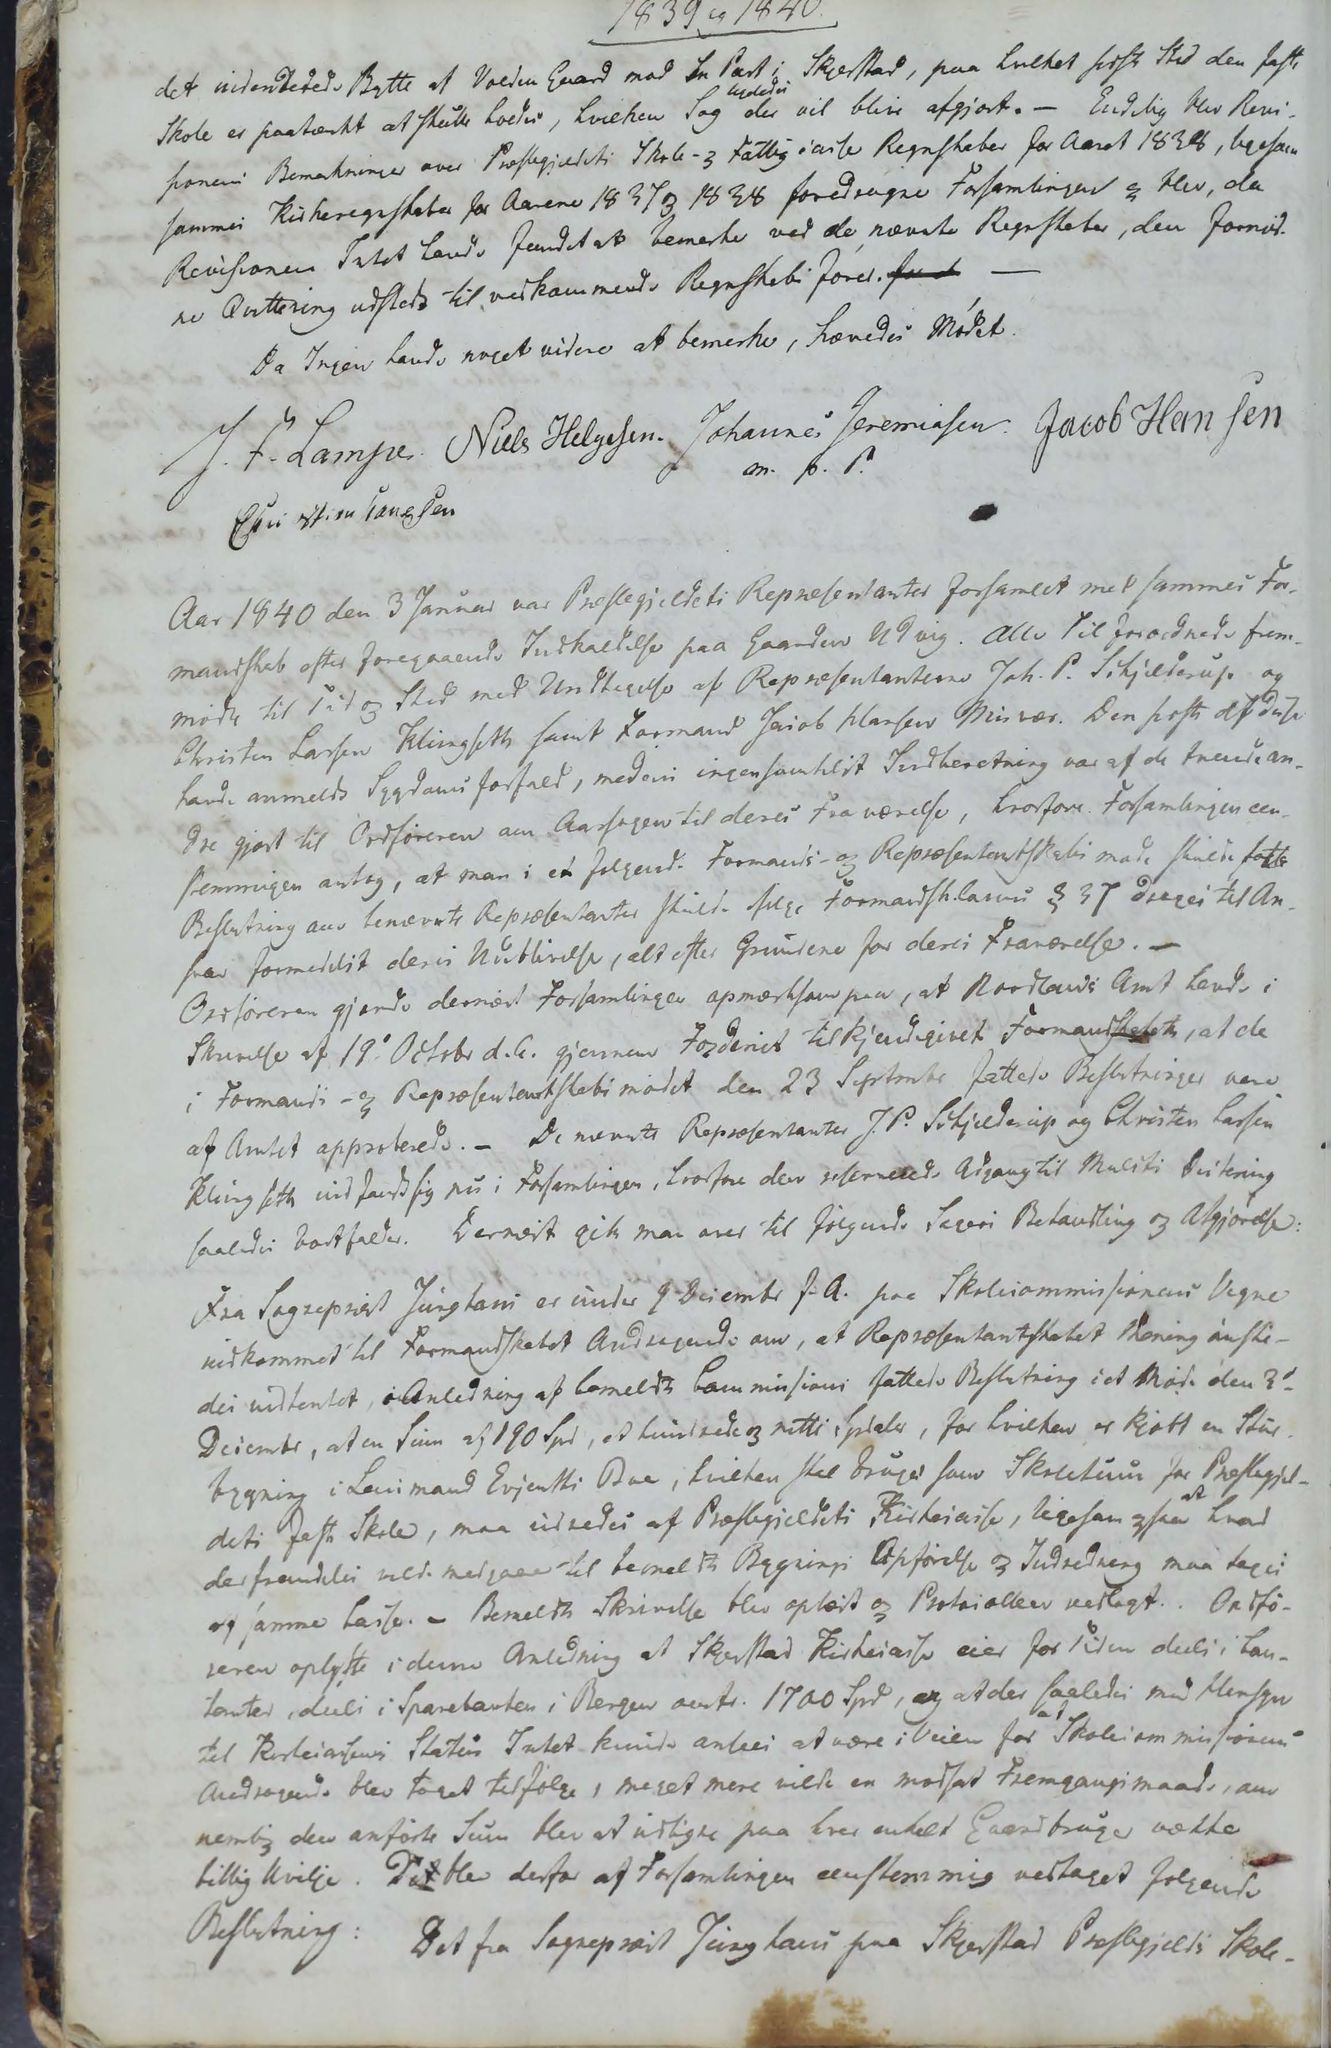 1839 og 1840.
det indenbetede Bytte af Volden Gaard mod En Part i Skjerstad, paa hvilket første Sted den faste
Skole er paatænkt at skulle holdes, hvilken Sag ligeledes der vil blive afgjort. — Endelig blev Revi-
sionens Bemærkninger over Præstegjeldets Skole- og Fattigcasse Regnskaber for Aaret 1838, ligesom
sammes Kirkeregnskaber for Aarene 1837 og 1838 foredragne Forsamlingen og blev, da
Revisionen Intet havde fundet at bemerke ved de nævnte Regnskaber, den fornød-
ne Qvittering udstedt til vedkommende Regnskabsfører. —
Da Ingen havde noget videre at bemerke, hævedes Mødet.
J. F. Lampe. Niels Helgesen. Johannes Jeremiasen. Jacob Hansen
m. p. P.
Aar 1840 den 3 Januar var Præstegjeldets Repræsentanter forsamlet med sammes For-
mandskab efter foregaaende Indkaldelse paa Gaarden Udvig. Alle Tilforordnede frem-
mødte til Tid og Sted med Undtagelse af Repræsentanterne Joh. P. Schjelderup og
Christen Larsen Klungseth samt Formand Jacob Hansen Misvær. Den første af disse
havde anmeldt Sygdoms forfald, medens ingensomhelst Indberetning var af de tvende an-
dre gjort til Ordføreren om Aarsagen til deres Fraværelse, hvorfore Forsamlingen een-
stemmigen antog, at man i et følgende Formands- og Repræsentantskabs møde skulde fatte
Beslutning om benævnte Repræsentanter skulde ifølge Formandsk.lovens § 37 drages til An-
svar formedelst deres Udeblivelse, alt efter Grundene for deres Fraværelse. —
Ordføreren gjorde dernæst Forsamlingen opmærksom paa, at Nordlands Amt havde i
Skrivelse af 19de Octobr d. A. gjennem Fogderiet tilkjendegivet Formandskabet, at de
i Formands- og Repræsentantskabsmødet den 23 September fattede Beslutninger vare
af Amtet approberede. — De nævnte Repræsentanter J. P. Schjelderup og Christen Larsen
Klungseth indfandt sig nu i Forsamlingen, hvorfore den reserverede Adgang til Mulcts Dictering
saaledes bortfalder. Dernæst gik man over til følgende Sagers Behandling og Afgjørelse:
Fra Sognepræst Junghans er under 9 Decembr f. A. paa Skolecommissionens Vegne
indkommet til Formandskabet Andragende om, at Repræsentantskabet Mening ønske-
des indhentet, i Anledning af bemeldte Commissions fattede Beslutning i et Møde den 3de
Decembr, at en Sum af 190 Spd, et hundrede og nitti Spdaler, for hvilken er kjøbt en Stue-
bygning i Lensmand Evjenths Boe, hvilken skal bruges som Skolehuus for Præstegjel-
dets faste Skole, maa udredes af Præstegjeldets Kirkecasse, ligesom og at hvad
der fremdeles vilde medgaae til bemeldte Bygnings Opførelse og Indredning maa tages
af samme Casse. — Bemeldte Skrivelse blev oplæst og Protocollen vedlagt. Ordfø-
reren oplyste i denne Anledning at Skjerstad Kirkecasse eier for Tiden deels i Con-
tanter, deels i Sparebanken i Bergen omtr. 1700 Spd, og at der saaledes med Hensyn
til Kirkecassens Status Intet kunde ansees at være i Veien for at Skolecommissionens
Andragende blev taget tilfølge, meget mere vilde en modsat Fremgangsmaade, om
nemlig den anførte Sum blev at udligne paa hver enkelt Gaardbruger vække
billig Uvilje. Det blev derfor af Forsamlingen eenstemmig vedtaget følgende
Beslutning: Det fra Sognepræst Junghans paa Skjerstad Præstegjelds Skole-